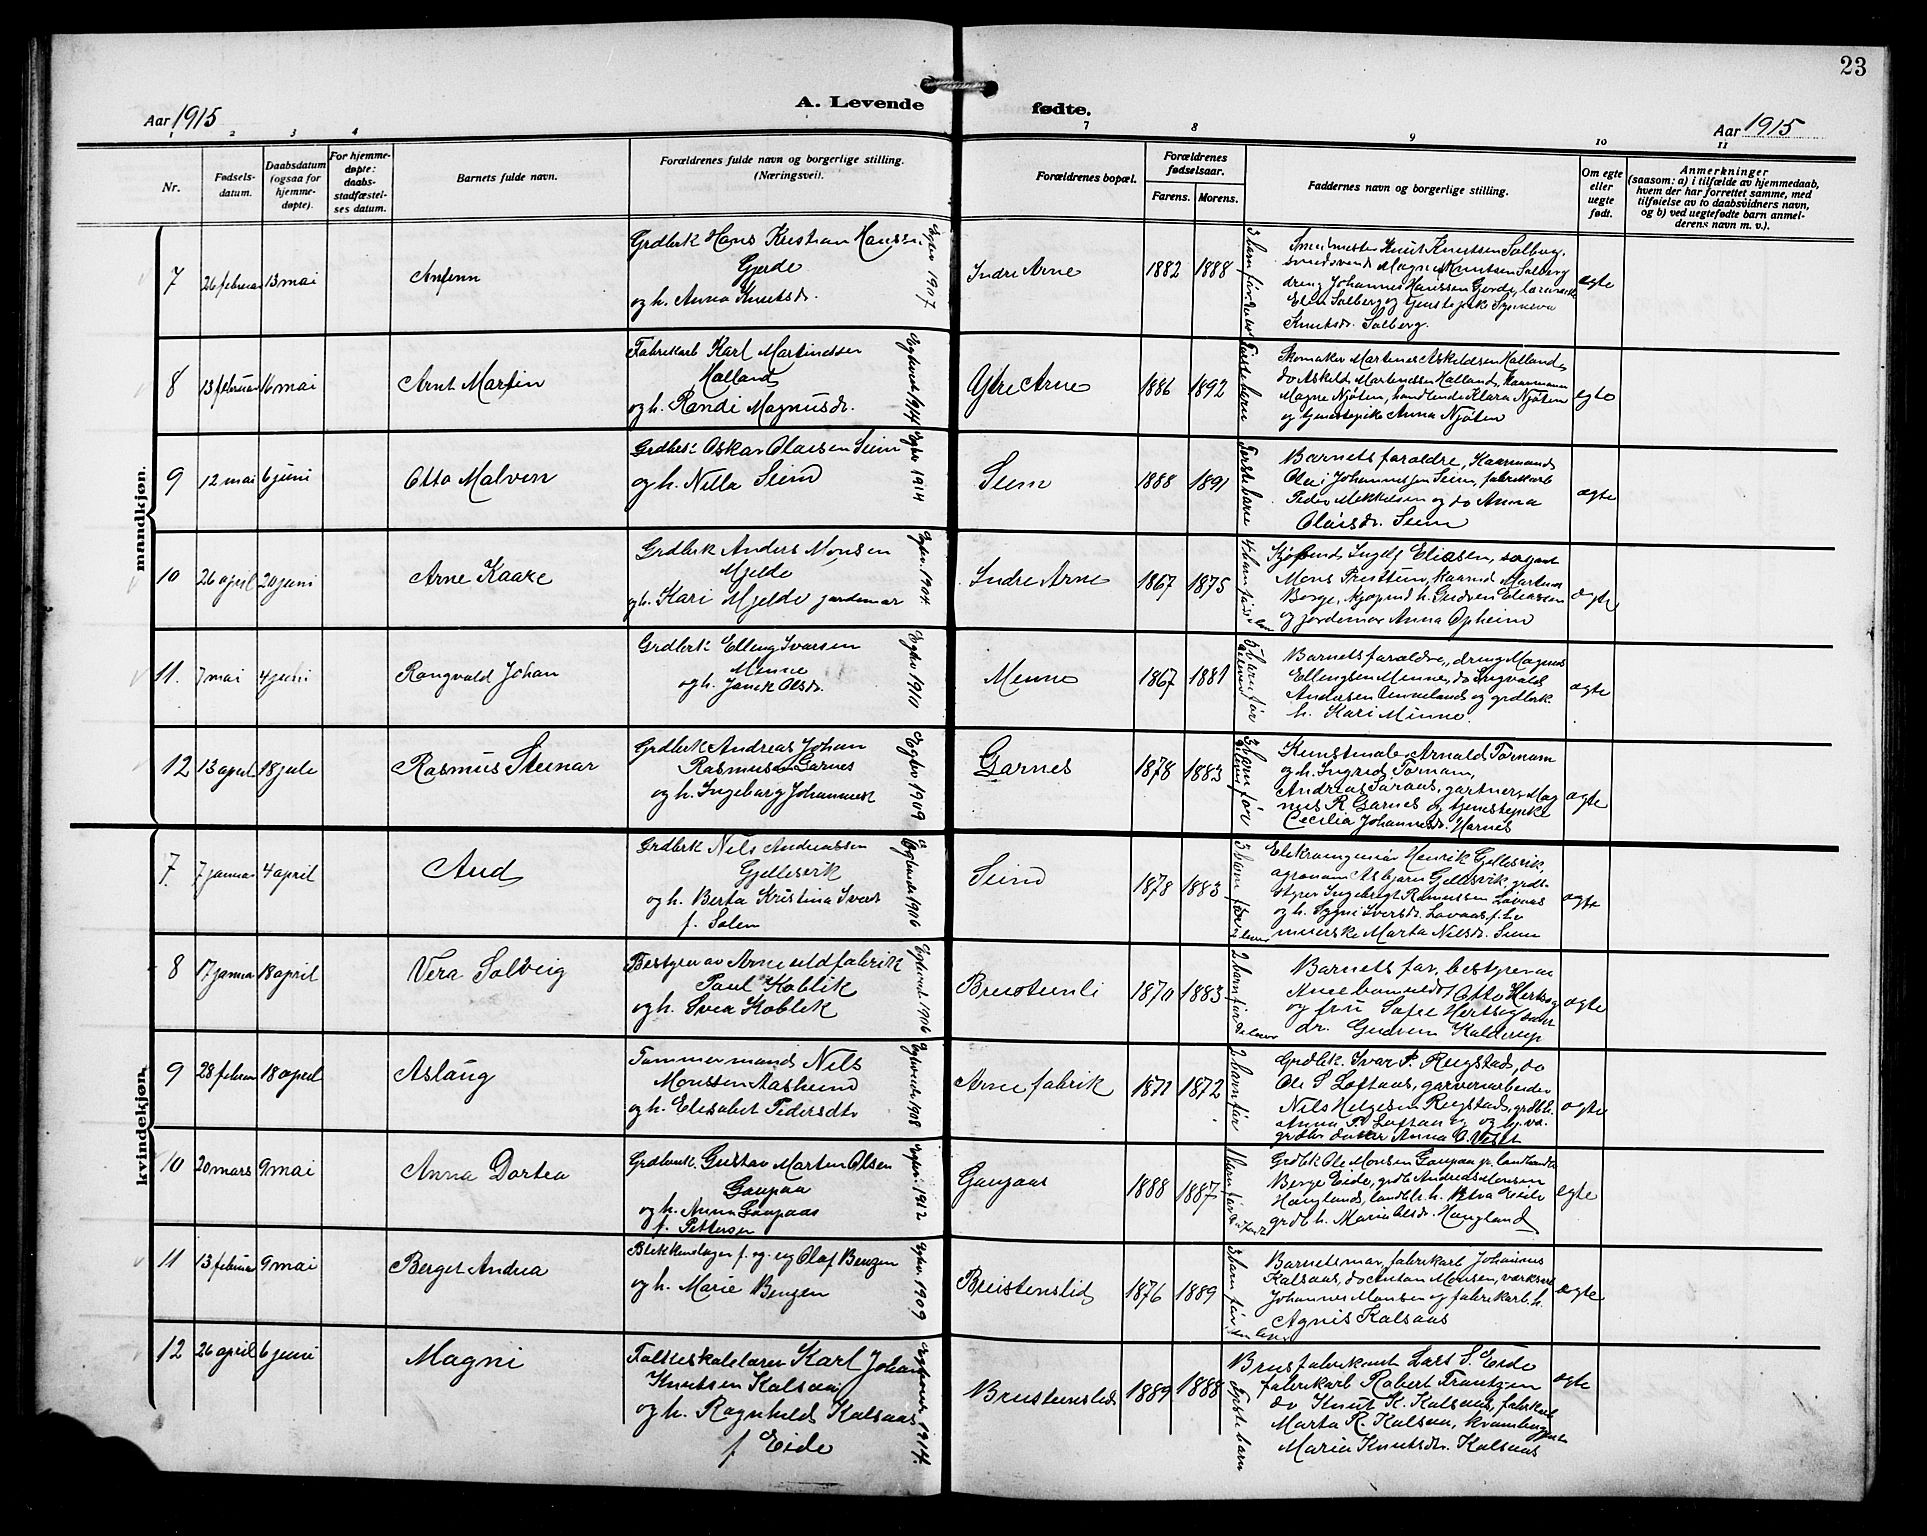 23
A. Levende fødte.
Aar 1915
Aar 1915
1 2 3 4 7 8 9 10 11
Nr.
Fødsels-
datum.
Daabsdatum
(ogsaa for
hjemme-
døpte).
For hjemme-
døpte:
daabs-
stadfæstel-
ses datum.
Barnets fulde navn.
Forældrenes fulde navn og borgerlige stilling.
(Næringsvei).
Forældrenes bopæl.
Forældrenes
fødselsaar.
Farens. Morens.
Faddernes navn og borgerlige stilling.
Om egte
eller
uegte
født.
Anmerkninger
(saasom: a) i tilfælde av hjemmedaab,
hvem der har forrettet samme, med
tilføielse av to daabsvidners navn,
og b) ved uegtefødte barn anmel-
derens navn m. v.).
mandkjøn.
7 26 februar 13 mai
Anfinn
Grdbrk Hans Kristian Hansen
Gjerde
og h. Anna Knutsdr.
1907
Indre Arne 1882 1888
Knut Knutsen Solberg,
Magne Knutsen Solberg
dreng Johannes Hanssen Gjerde,
Solberg og tjenestepike Synneva
Knutsdr. Solberg.
ægte
8 13 februar 16 mai
Arnt Martin
Fabrikarb Karl Martinussen
Halland
og h. Randi Magnusdr.
1914
Ytre Arne 1886 1892
Første barn
Skomaker Martines Askeldsen Halland,
do Askeld Martinussen Halland, Kaarmann
Magne Njøten, handlende Klara Njøten
og tjenestepike Anna Njøten
egte
9 12 mai 6 juni
Otto Malvin
Grdbr. Oskar Olaisen Seim
og h. Nilla Seim
1914
Seim 1888 1891
Første barn
Barnets foraldre, Kaarmand
Olai Johannessen Seim, fabrikarb
Peder Mikkelsen og do Anna
Olaisdr. Seim
ægte
10 26 april 20 juni
Arne Kaare
Grdbrk Anders Monsen
Mjelde
og h. Kari Mjelde jordemor
1904
Indre Arne 1867 1875
4 barn før
Kjøbmd Ingolf Eliasen,
Mons Trøttum, kaarmd Martin
Borge, kjøpmd h. Gudrun Eliassen
og jordemor Anna Opheim
ægte
11. 7 mai 4 juni
Rangvald Johan
Grdbrk. Elling Ivarsen
Minne
og h. Janik Olsdr.
1910
Minne 1867 1881
Barnets foraldre, dreng Magnus
Ellingsen Minne, do Ingvald
Andersen Unneland og grdbrk
h. Kari Minne.
ægte
12 13 april 18 juli
Rasmus Steinar
Grdbrk Andreas Johan
Rasmussen Garnes
og h. Ingeborg Johannesd.
1909
Garnes 1878 1883
3 barn før
Kunstmaler Arnold Tornam
og h. Ingrid Tornam,
Andreas Saraas, gartner, Mag
nus R Garnes og tjenestepike
Cecilia Johannesdr. Harnes
ægte
kvindekjøn.
7. 7 januar 4 april
Aud
Grdbrk Nils Andreassen
Gjellesvik
og h. Berta Kristina Ivers
f. Solem
1906
Seim 1878 1883
3 barn før
Elektroingeniør Henrik Gjellesvik,
agronom Asbjørn Gjellesvik, grdb.
styrer Ingebrigt Rasmussen Lovaas
og h. Sygni Iversdr. Lovaas,
Marta Nilsdr. Seim
ægte
8 17 januar 18 april
Vera Solveig
Bestyrer av Arne uldfabrik
Paul Koblik
og h. Svea Koblik
1906
Breistenli 1870 1883
2 barn før
Barnets far, bestyrer av
Otto Hertzog
og fru Sofie Hertzog
dr. Gudrun Kalderup
ægte
9 28 februar 18 april
Aslaug
Tømmermand Nils
Monssen Aaslund
og h. Elisabet Pedersdtr
1908
Arne fabrik 1872
2 barn før
Grdbk. Ivar P. Rugstad, do
Ole S Loftaas, garveriarbeider
Nils Helgesen Rugstad, grdb h.
Anna P. Loftaas og
grdbr datter Anna O.
ægte
10 20 mars 9 mai
Anna Dortea
Grdbruk. Gustav Martin Olsen
Gaupaa
og h. Anna Gaupaas
f. Petterson
1912
Gaupaas 1888 1887
1 barn før
Grdbk Ole Monsen Gaupaa,
Berge Eide, grdb Andreas Monsen
Haugland, landb. h. Petra Eide
grdb h. Marie Olsdr. Haugland
egte
11 13 februar 9 mai
Berget Andrea
Blikkenslager Olaf Bengen
og h. Marie Bengen
1909
Breistenslid 1876 1889
3 barn før
Barnets mor, fabrikarb Johannes
Kalsaas, do Anton Monsen,
Johannes Monsen og fabrikarb. h.
Agnis Kalsaas
ægte
12 26 april 6 juni
Magni
Folkeskolelærer Karl Johan
Knutsen Kalsaa,
og h. Ragnhild Kalsaas
f Eide
1914.
Breistenslid 1889 1888
Første barn
Brusfabrikant Lars S. Eide
fabrikarb Robert Frantzen
do Knut K. Kalsaas, fabrikarb
Marta R. Kalsaa,
Maria Knutsdr. Kalsaas
ægte